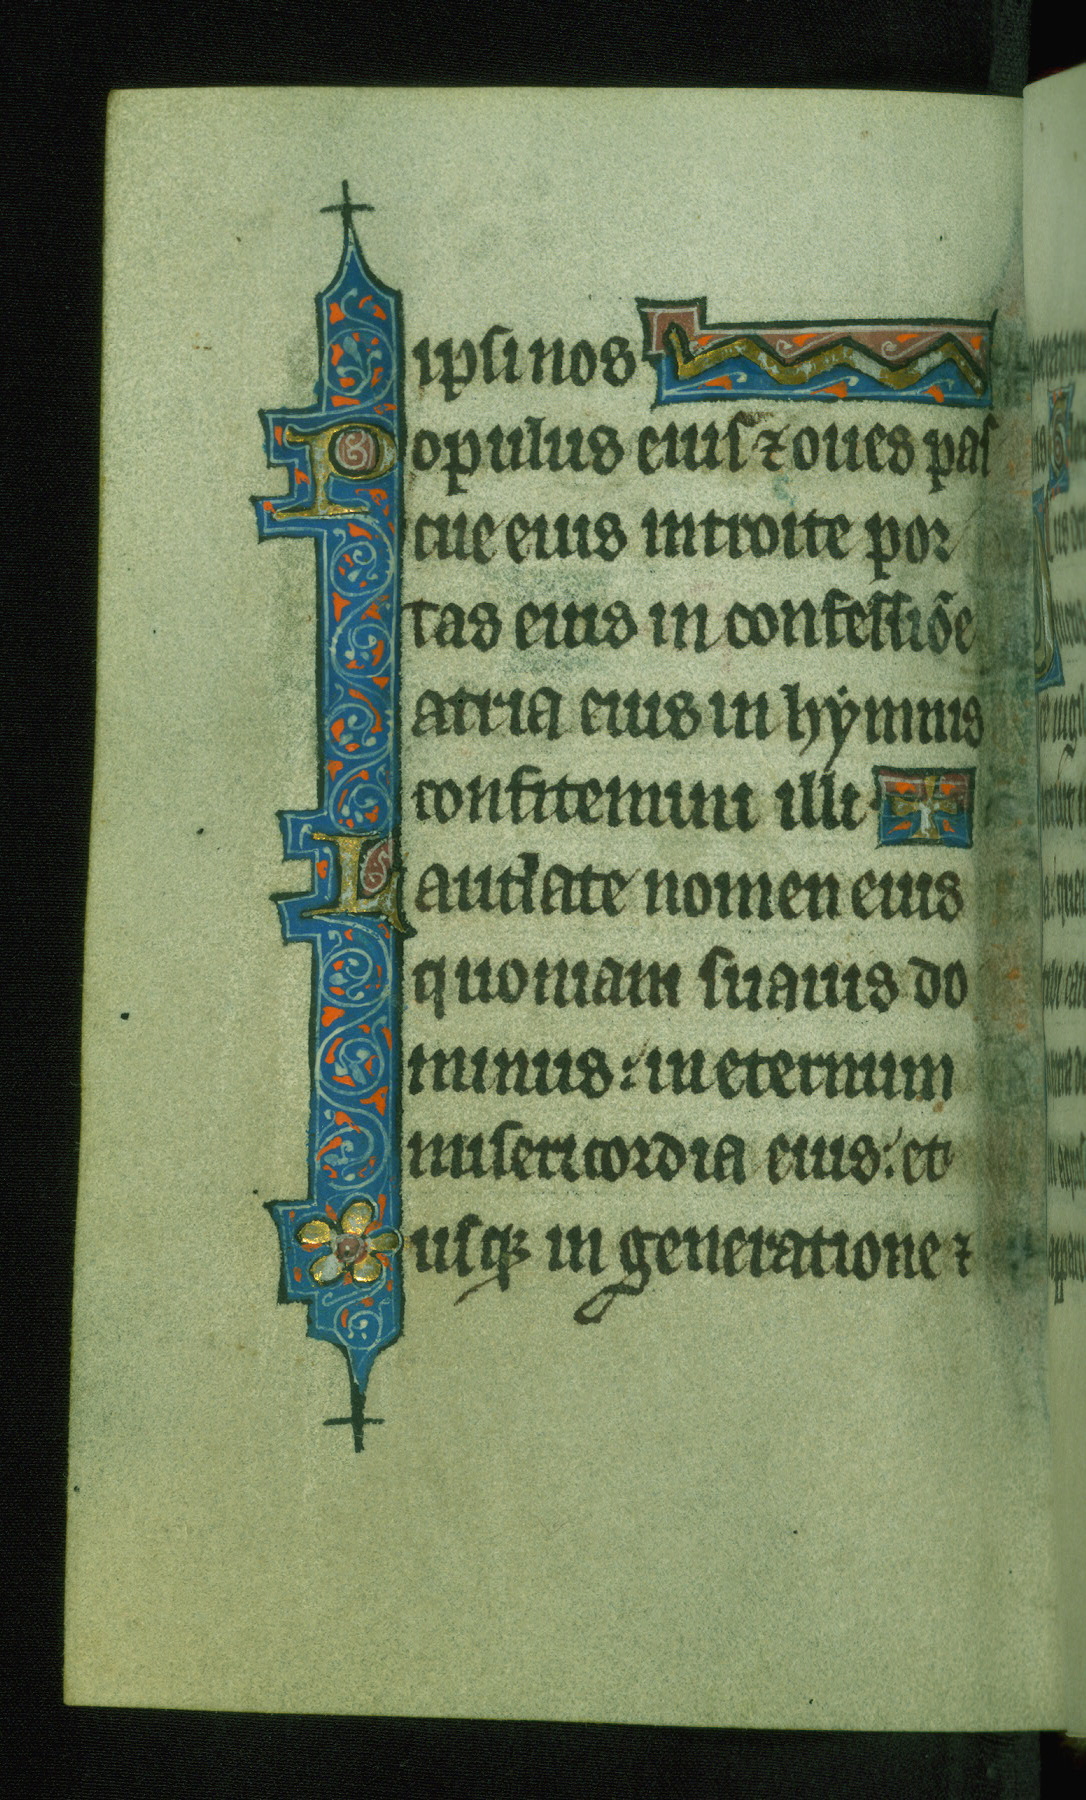 ipsi nos
Populus eius ⁊ oues pas
cue eius introite por
tas eius in confessiõe
atria eius in hẏmnis
confitemini illi
Laudate nomen eius
quoniam suauis do
minus: in eternum
misericordia eius: et
usqꝫ in generatione ⁊